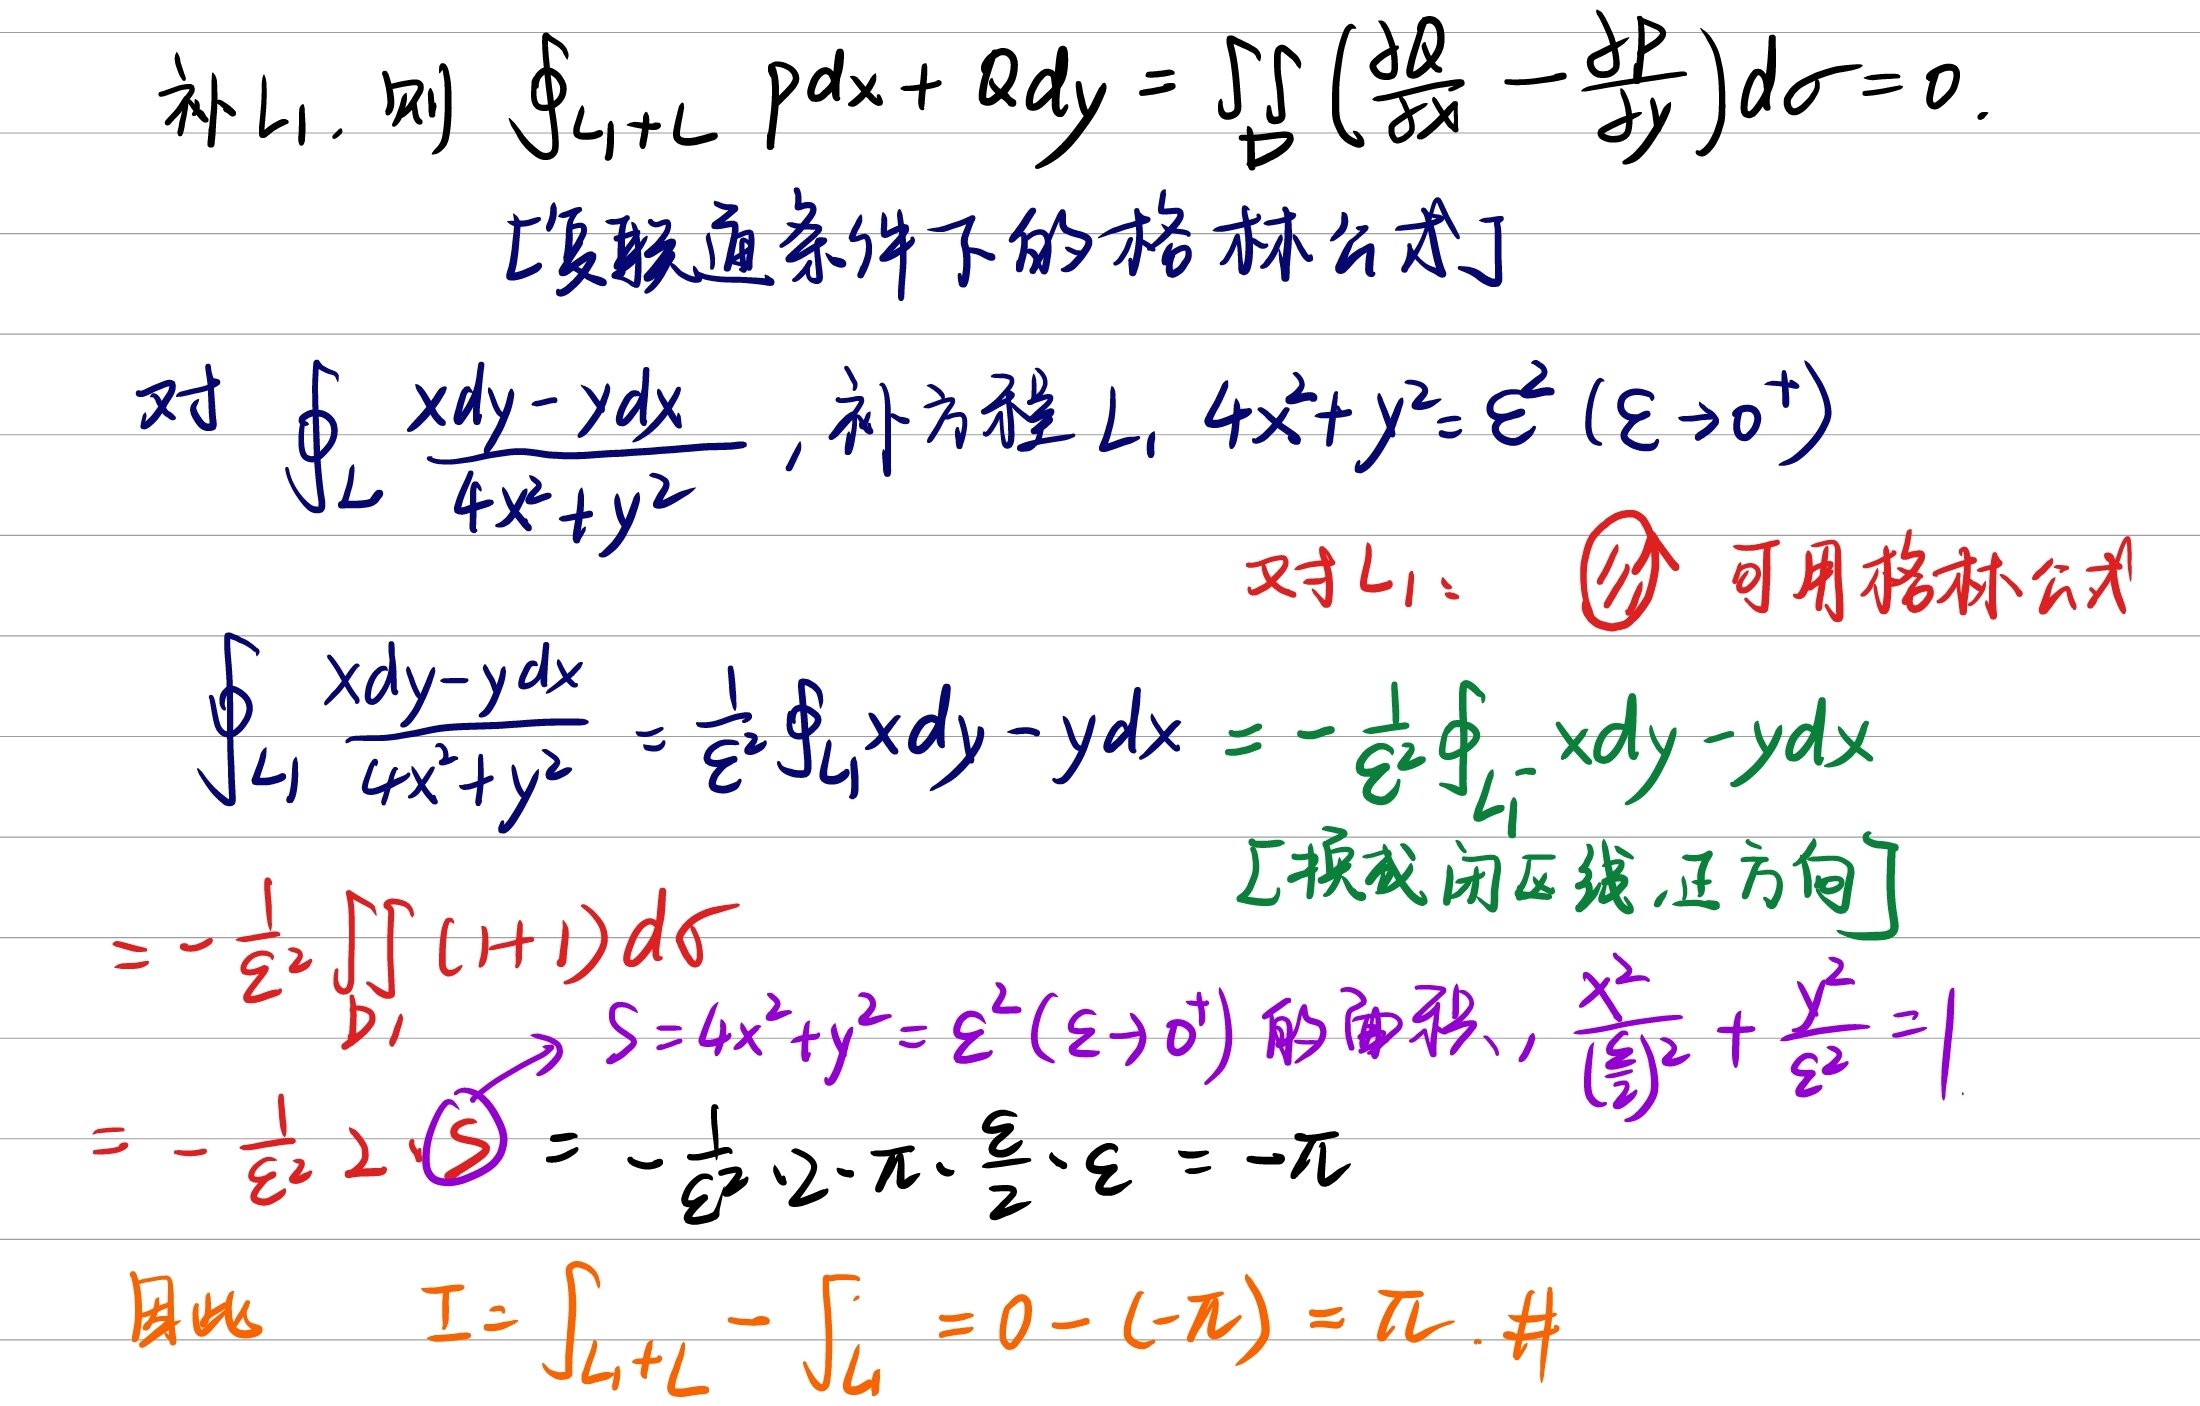 补L₁，则 ∮_{L₁+L} Pdx + Qdy = ∬_D (∂Q/∂x − ∂P/∂y)dσ = 0.
[复联通条件下的格林公式]
对 ∮_L (xdy−ydx)/(4x²+y²)，补方程 L₁ 4x²+y²=ε² (ε→0⁺)
对L₁： 可用格林公式
∮_{L₁} (xdy−ydx)/(4x²+y²) = 1/ε² ∮_{L₁} xdy−ydx = −1/ε² ∮_{L₁⁻} xdy−ydx
[换成闭区线，正方向]
= −1/ε² ∬_{D₁} (1+1)dσ
S=4x²+y²=ε²(ε→0⁺) 的面积，x²/(ε/2)² + y²/ε² = 1
= −1/ε² 2·S = −1/ε²·2·π·ε/2·ε = −π
因此 I = ∫_{L₁+L} − ∫_{L₁} = 0−(−π) = π. #